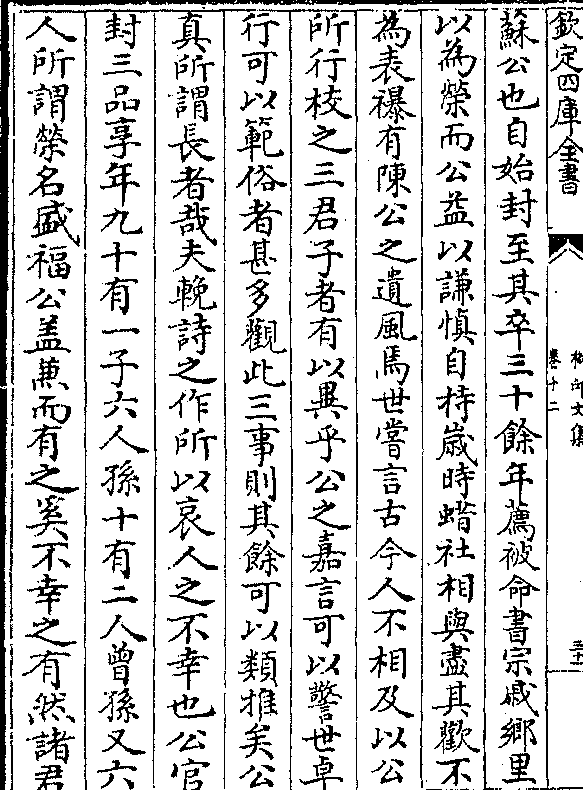 欽定四庫全書
卷十二
蘇公也自始封至其卒三十餘年薦被命書宗戚鄉里
以為榮而公益以謙慎自持歲時蜡社相與盡其歡不
為表襮有陳公之遺風焉世嘗言古今人不相及以公
所行校之三君子者有以異乎公之嘉言可以警世卓
行可以範俗者甚多觀此三事則其餘可以類推矣公
真所謂長者哉夫輓詩之作所以哀人之不幸也公官
封三品享年九十有一子六人孫十有二人曾孫又六
人所謂榮名盛福公盖兼而有之奚不幸之有然諸君